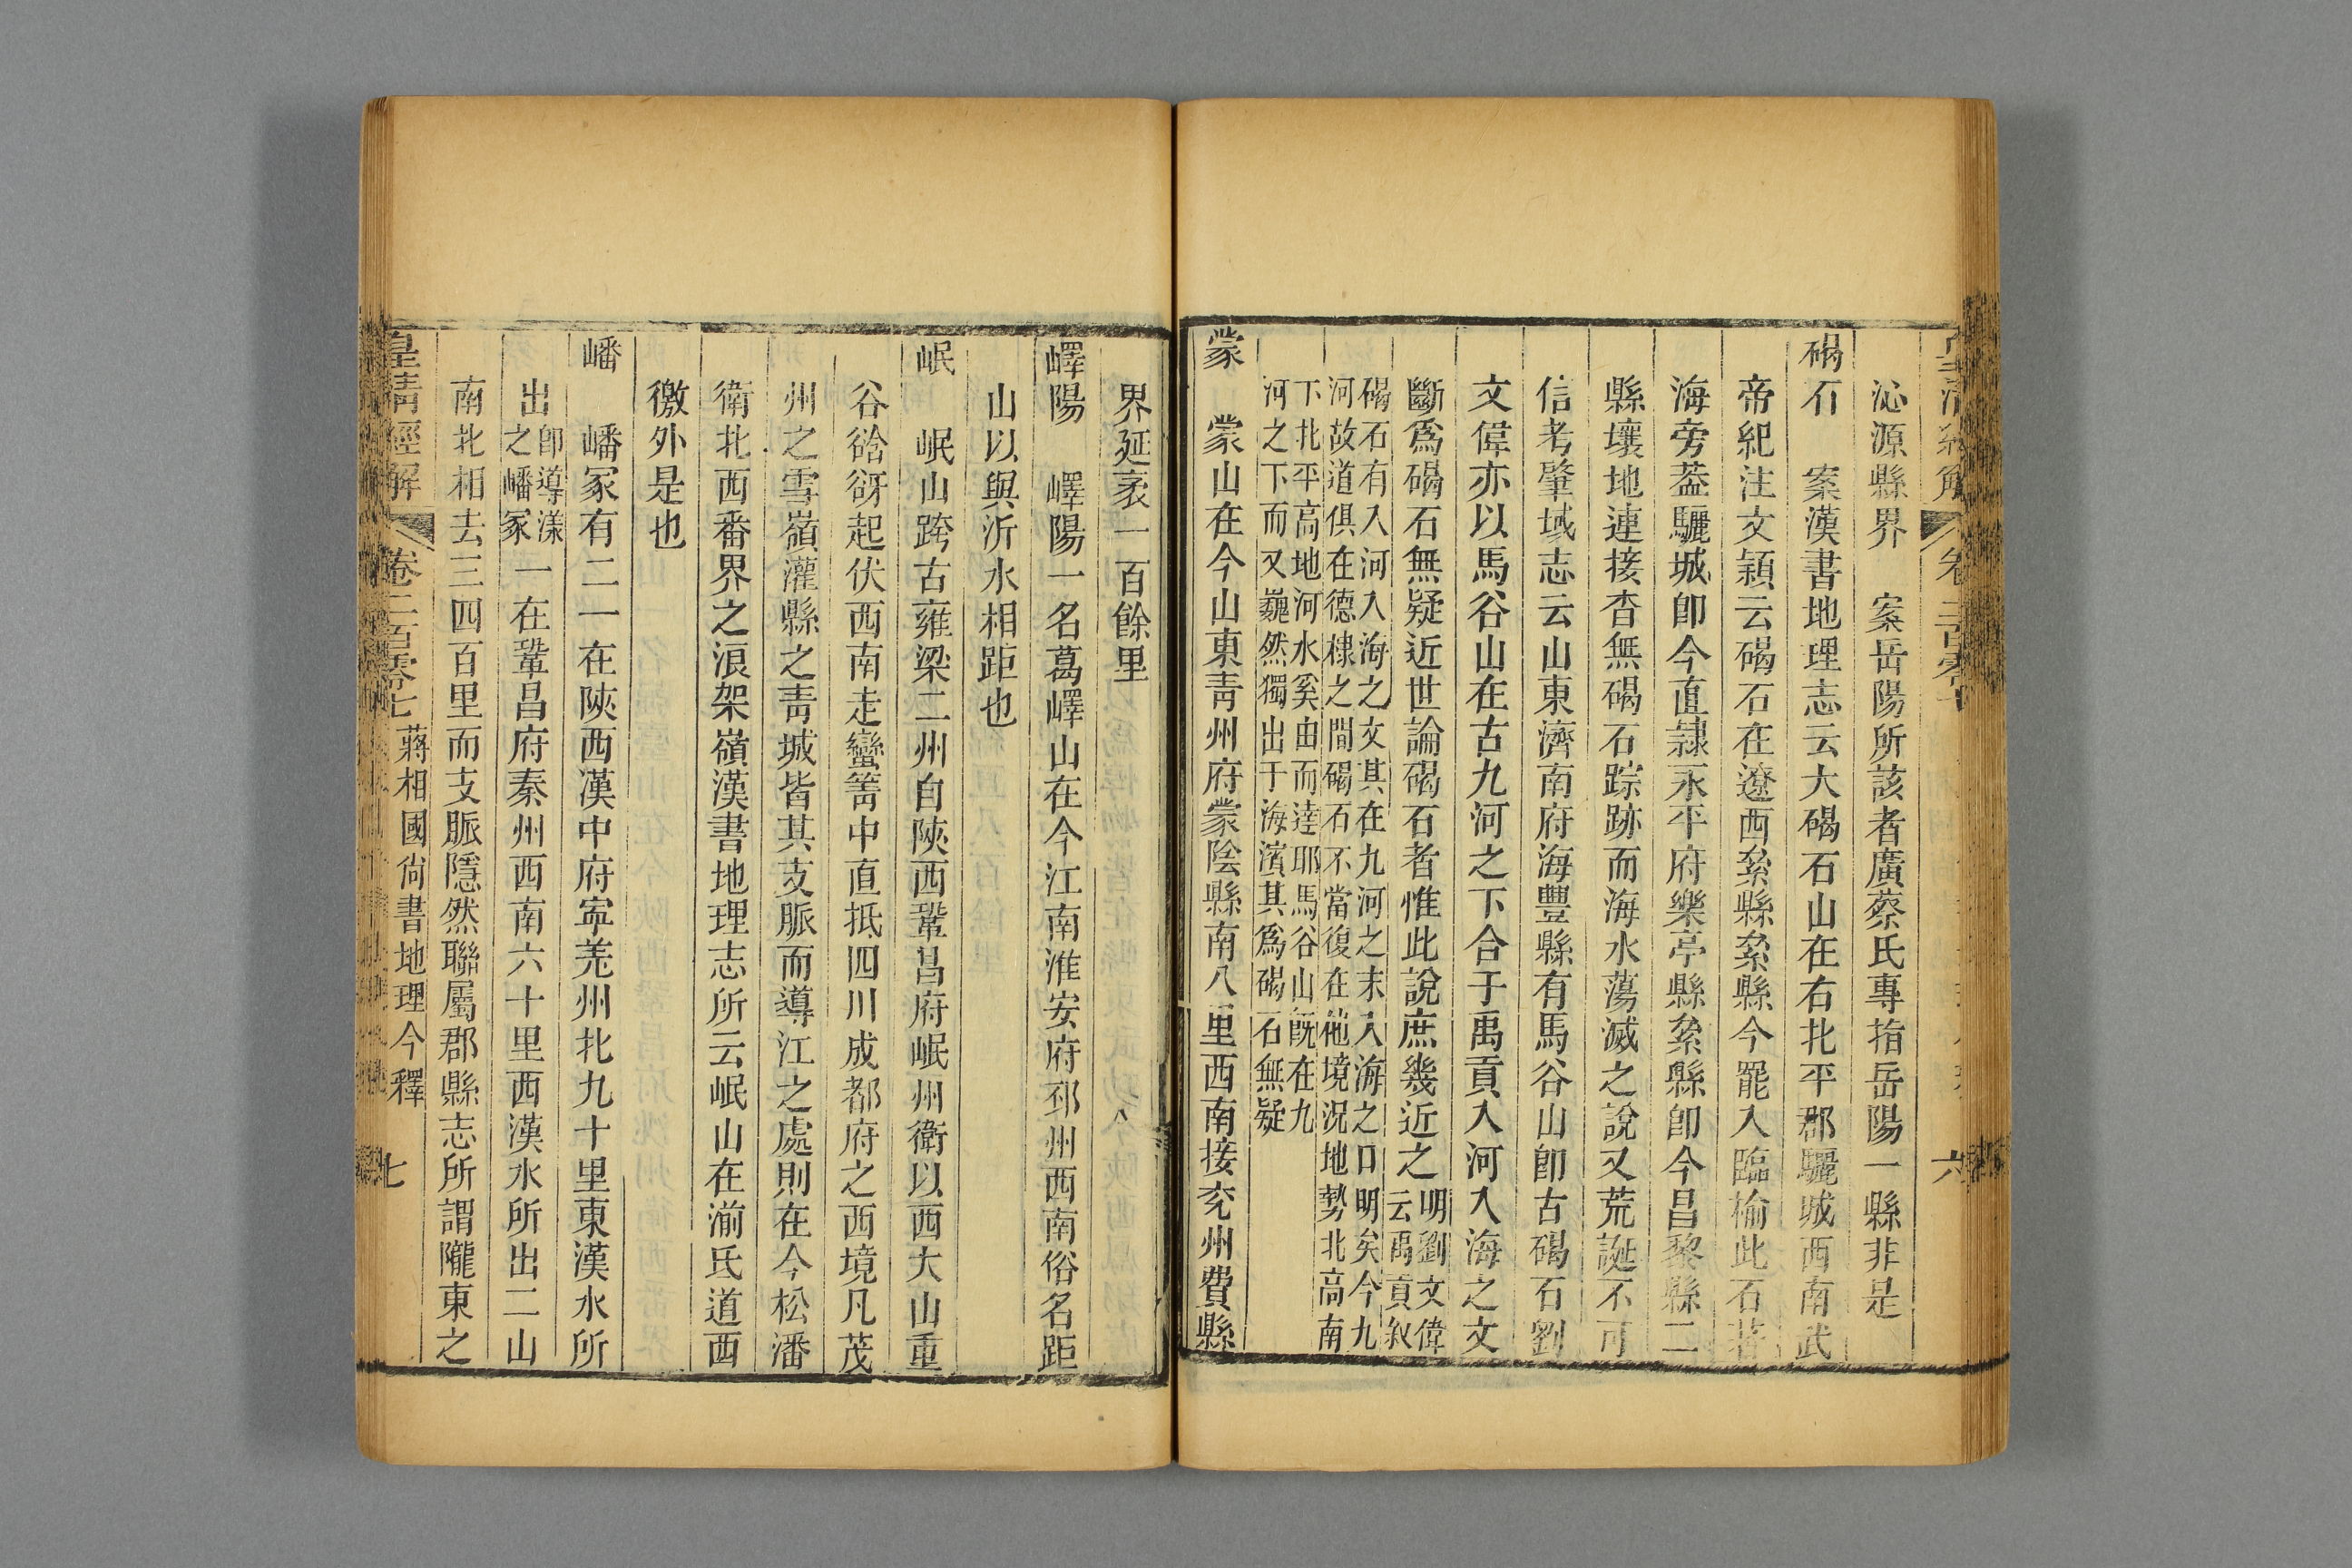 沁源縣界　案岳陽所該者廣蔡氏專指岳陽一縣非是
碣石　案漢書地理志云大碣石山在右北平郡驪城西南武
帝紀注文穎云碣石在遼西絫縣絫縣今罷入臨榆此石著
海旁葢驪城卽今直隸永平府樂亭縣絫縣卽今昌黎縣二
縣壤地連接杳無碣石踪跡而海水蕩滅之說又荒誕不可
信考肇域志云山東濟南府海豐縣有馬谷山卽古碣石劉
文偉亦以馬谷山在古九河之下合于禹貢入河入海之文
斷爲碣石無疑近世論碣石者惟此說庶幾近之明劉文偉
云禹貢叙
碣石有入河入海之文其在九河之末入海之口明矣今九
河故道俱在德棣之間碣石不當復在他境況地勢北高南
下北平高地河水奚由而逹耶馬谷山旣在九
河之下而又巍然獨出于海濱其爲碣石無疑
蒙　蒙山在今山東青州府蒙陰縣南八里西南接兖州費縣
界延袤一百餘里
嶧陽　嶧陽一名葛嶧山在今江南淮安府邳州西南俗名距
山以與沂水相距也
岷　岷山跨古雍梁二州自陝西鞏昌府岷州衛以西大山重
谷谽谺起伏西南走蠻箐中直抵四川成都府之西境凡茂
州之雪嶺灌縣之青城皆其支脈而導江之處則在今松潘
衛北西番界之浪架嶺漢書地理志所云岷山在湔氐道西
徼外是也
嶓　嶓冢有二一在陝西漢中府寕羗州北九十里東漢水所
出卽導漾
之嶓冢一在鞏昌府秦州西南六十里西漢水所出二山
南北相去三四百里而支脈隱然聯屬郡縣志所謂隴東之
皇清經解　卷二百零七　蔣相國尚書地理今釋　七